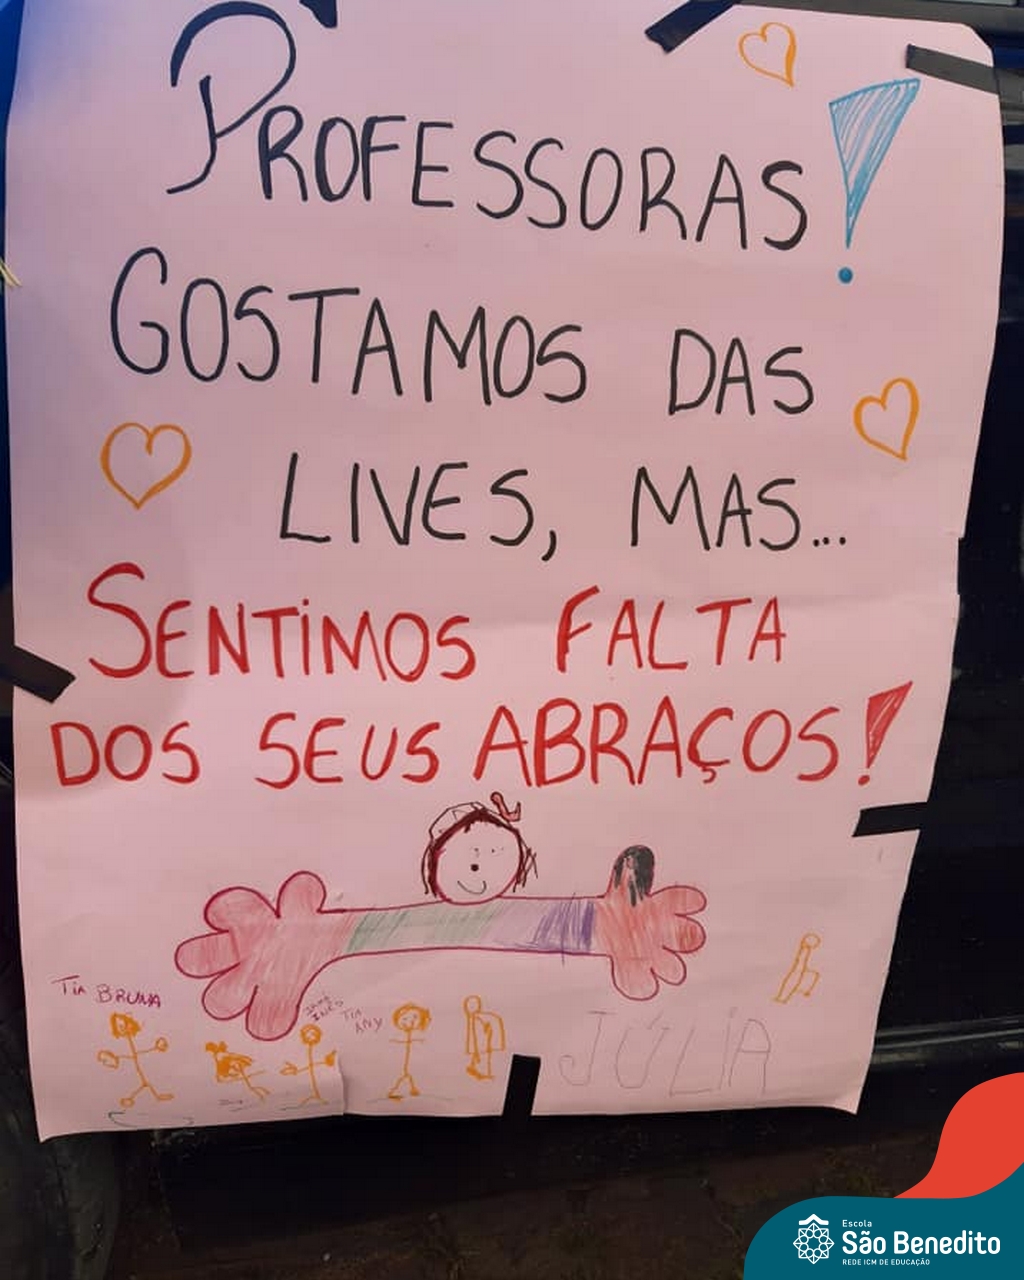 PROFESSORAS!
GOSTAMOS DAS
LIVES, MAS...
SENTIMOS FALTA
DOS SEUS ABRAÇOS!
TIA BRUNA
IRMÃ
INÊS
TIA
ANY
JÚLIA
Escola
São Benedito
REDE ICM DE EDUCAÇÃO